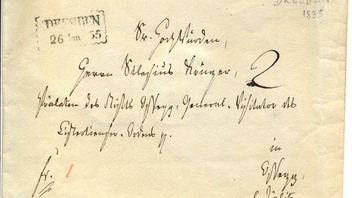 DRESDEN
26 Jan 55
DRESDEN
1835
Sr. Hochwürden,
Herrn Salesius Krüger,
2
Prälaten des Stifts Ossegg, General-Visitator des
Cistercienser-Ordens pp.
in
Ossegg,
fr.